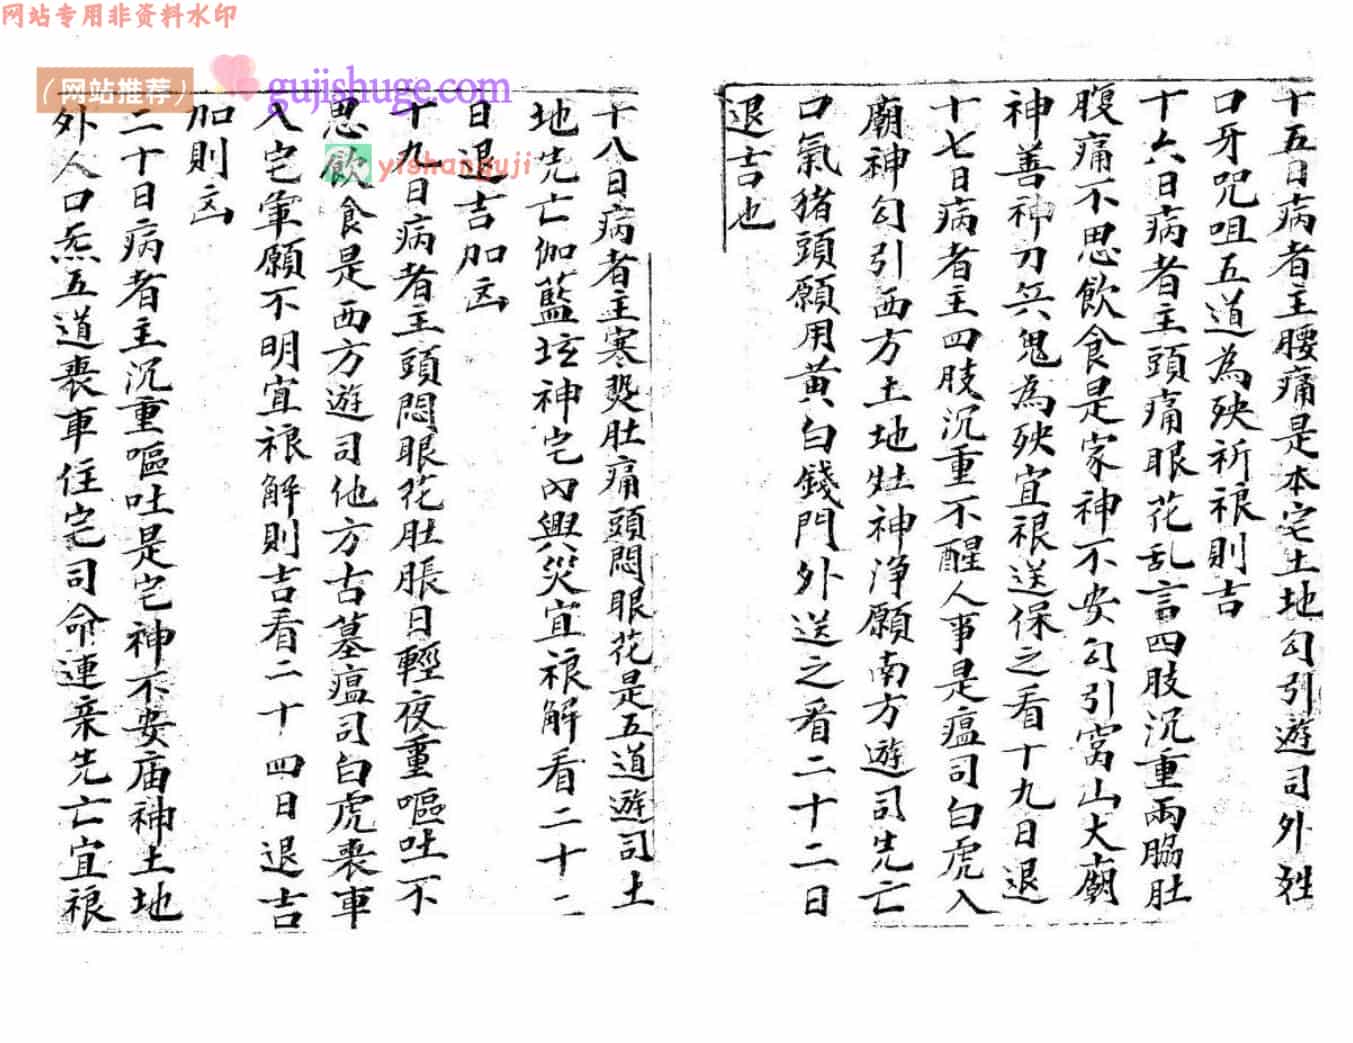 网站专用非资料水印
（网站推荐）
gujishuge.com
yishanguji
十五日病者主腰痛是本宅土地勾引遊司外姓
口牙咒咀五道為殃祈禳則吉
十六日病者主頭痛眼花乱言四肢沉重兩脇肚
腹痛不思飲食是家神不安勾引窩山大廟
神善神刀兵鬼為殃宜禳送保之看十九日退
十七日病者主四肢沉重不醒人事是瘟司白虎入
廟神勾引西方土地灶神净願南方遊司先亡
口氣猪頭願用黄白錢門外送之看二十二日
退吉也
十八日病者主寒熱肚痛頭悶眼花是五道遊司土
地先亡伽藍坛神宅內興災宜禳解看二十二
日退吉加凶
十九日病者主頭悶眼花肚脹日輕夜重嘔吐不
思飲食是西方遊司他方古墓瘟司白虎喪車
入宅軍願不明宜禳解則吉看二十四日退吉
加則凶
二十日病者主沉重嘔吐是宅神不安庙神土地
外人口炁五道喪車住宅司命連亲先亡宜禳